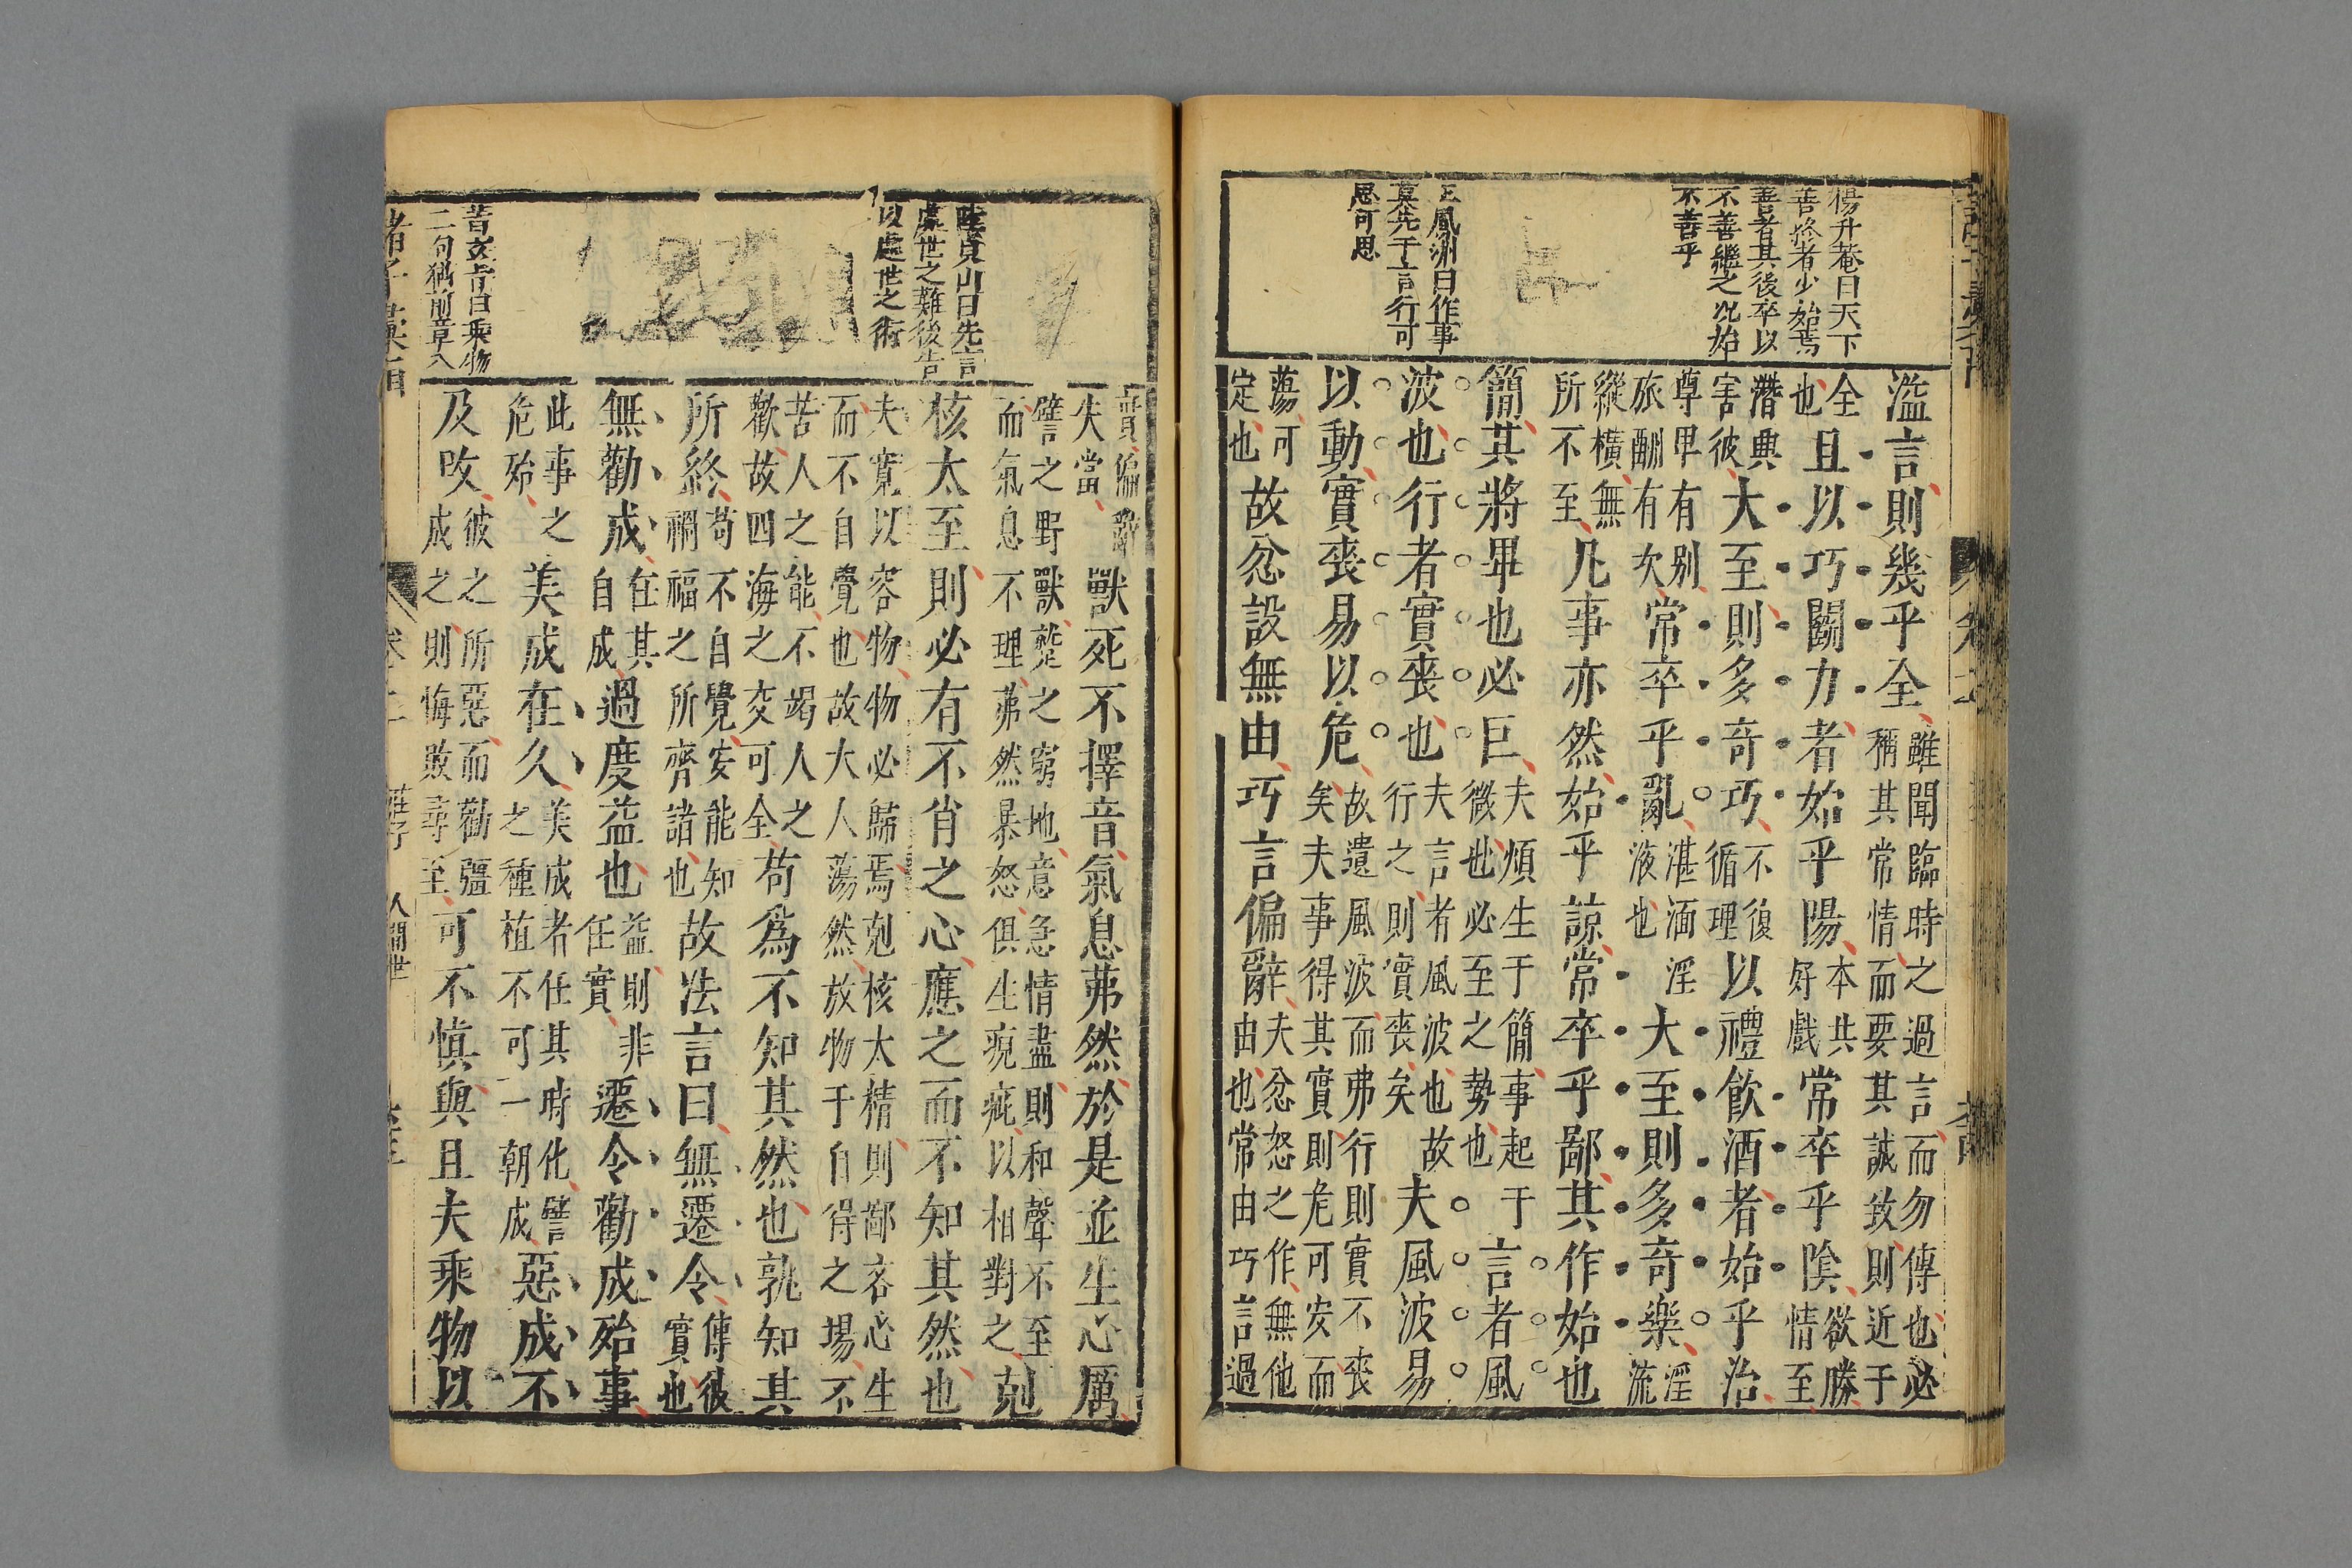 楊升菴曰天下
善終者少始焉
善者其後卒以
不善繼之况始
不善乎
王鳳洲曰作事
莫先于言行可
思可思
溢言則幾乎全雖聞臨時之過言而勿傳也必稱其常情而要其誠致則近于
全也且以巧鬭力者始乎陽本共好戲常卒乎陰欲勝情至
潛興害彼大至則多奇巧不復循理以禮飲酒者始乎治
尊卑有别旅酬有次常卒乎亂湛湎淫液也大至則多奇樂淫流
縱橫無所不至凡事亦然始乎諒常卒乎鄙其作始也
簡其將畢也必巨夫煩生于簡事起于微也必至之勢也言者風
波也行者實喪也夫言者風波也故行之則實喪矣夫風波易
以動實喪易以危故遺風波而弗行則實不喪矣夫事得其實則危可安而
蕩可定也故忿設無由巧言偏辭夫忿怒之作無他由也常由巧言過
陸貞山曰先言
處世之難後告
以處世之術
曰乘物
二句猶前章入
實偏辭失當獸死不擇音氣息茀然於是並生心厲
譬之野獸蹵之窮地意急情盡則和聲不至而氣息不理茀然暴怒俱生疵以相對之剋
核太至則必有不肖之心應之而不知其然也
夫寬以容物物必歸焉剋核太精則鄙吝心生而不自覺也故大人蕩然放物于自得之場不
苦人之能不竭人之歡故四海之交可全苟為不知其然也孰知其
所終苟不自覺安能知禍福之所齊諸也故法言曰無遷令傳彼實也
無勸成任其自成過度益也益則非任實遷令勸成殆事
此事之危殆美成在久美成者任其時化譬之種植不可一朝成惡成不
及攺彼之所惡而勸彊成之則悔敗尋至可不慎與且夫乘物以
諸子彙函 卷二 莊子 人間世